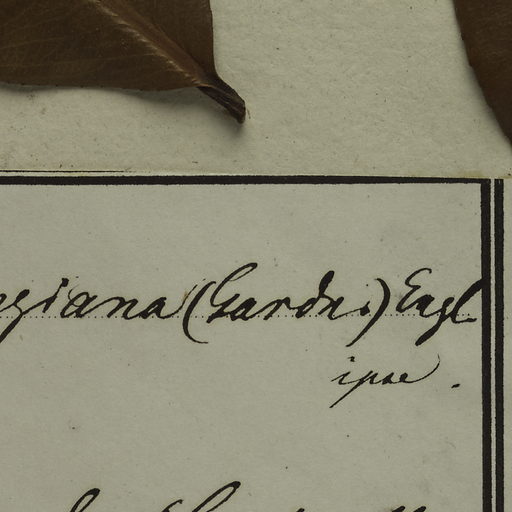 giana (Gardn.) Engl
ipse.